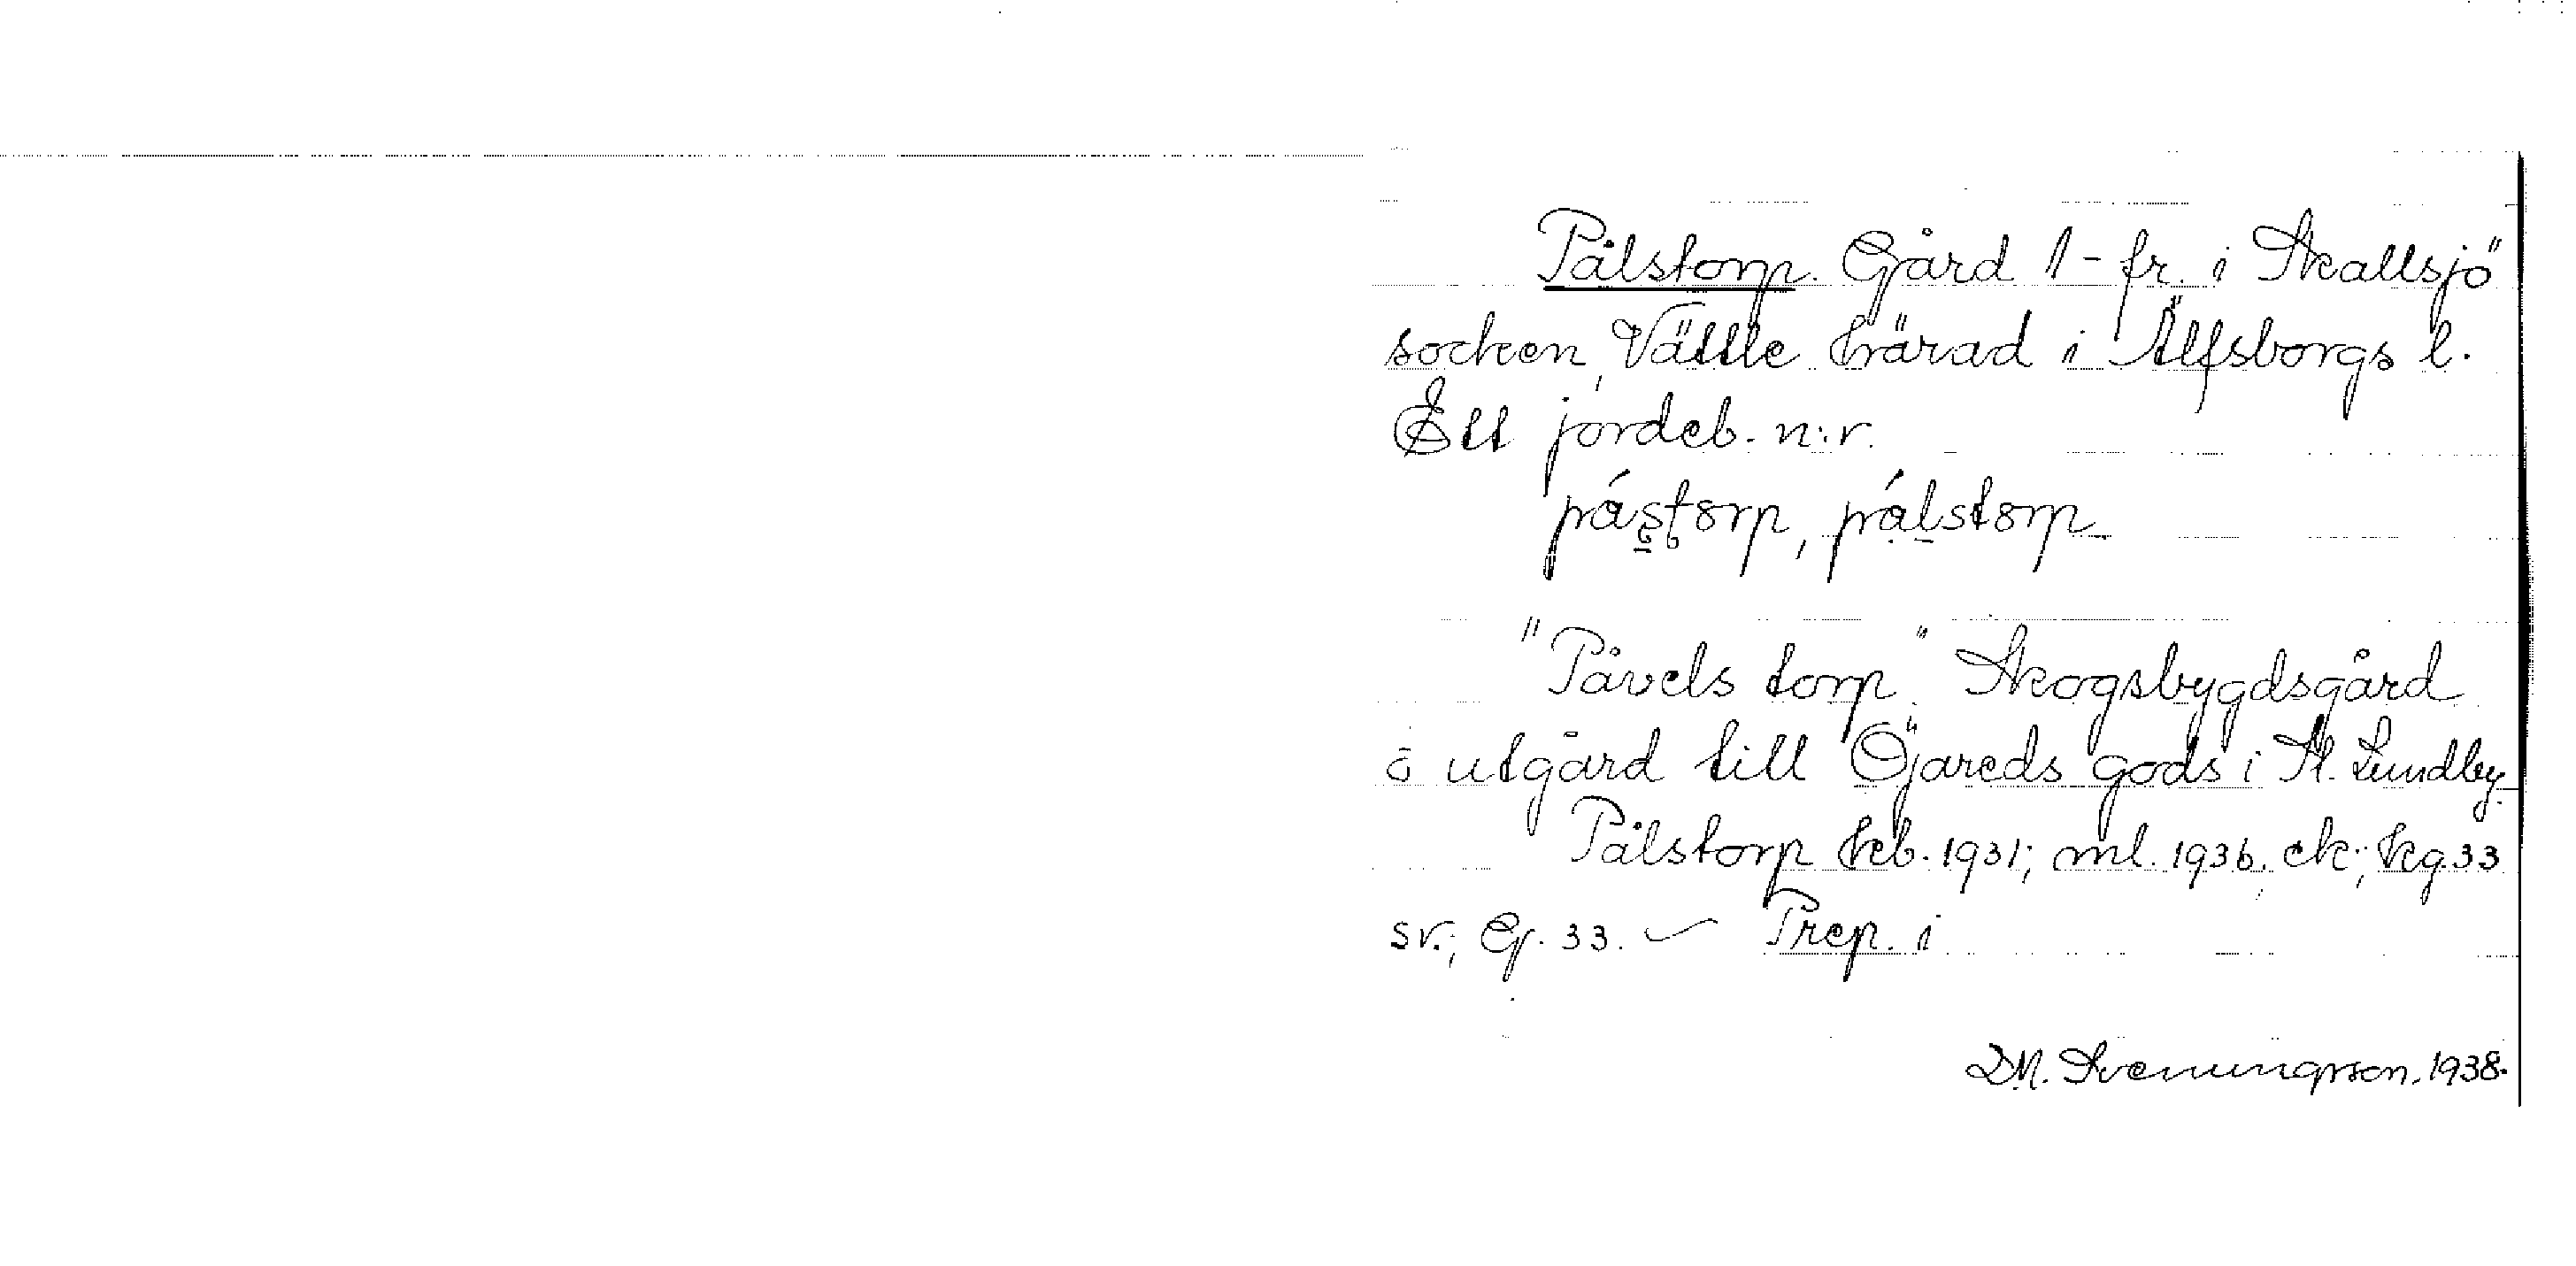 Pålstorp. Gård 1-fr. i Skallsjö
socken, Vättle härad i Älfsborgs l.
Ett jordeb. n:r.
"Påvels torp". Skogsbygdsgård
å utgård till Öjareds gods i St. Lundby.
Pålstorp heb. 1931; ml. 1936. ek; kg. 33
sv.; Gf. 33. Prep. i
D.M. Svenungsson, 1938.